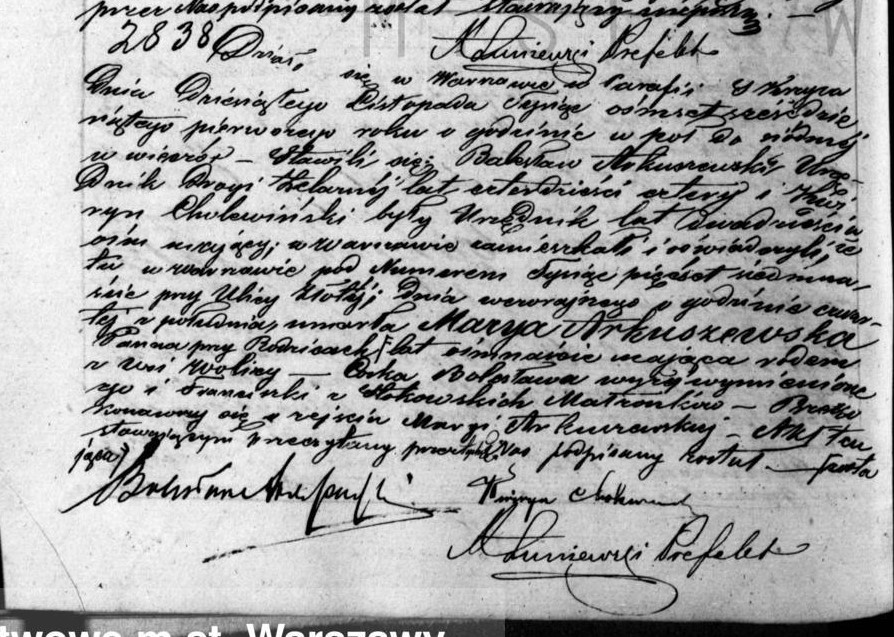 przez Nas podpisany został
2838 Działo się w Warszawie w Parafii S Krzyża
Maluniewski Prefekt
Dnia Dziesiątego Listopada Tysiąc ośmset sześćdzie
siątego pierwszego roku o godzinie w pół do siódmej
w wieczór – Stawili się; Bolesław Arkuszewski, Urzę
Dnik Drogi Żelaznej lat czterdzieści cztery i
Cholewiński były Urzędnik lat dwadzieścia
ośm mający; w Warszawie zamieszkali i oświadczyli, że
tu w Warszawie pod Numerem Tysiąc pięćset siedmna,
ście przy Ulicy Złotej; Dnia wczorajszego o godzinie czwar-
tej z południa, umarła Marya Arkuszewska
Panna przy Rodzicach lat ośmnaście mająca rodem
z wsi Wolicy — Córka Bolesława wyżej wymienione
go i Franciszki z Małżonków – Przeko
nawszy się o zejściu Maryi Arkuszewskiej – Akt ten
stawającym przeczytany przez Nas podpisany został —
jąca)
Maluniewski Prefekt
twowe m.st. Warszawy